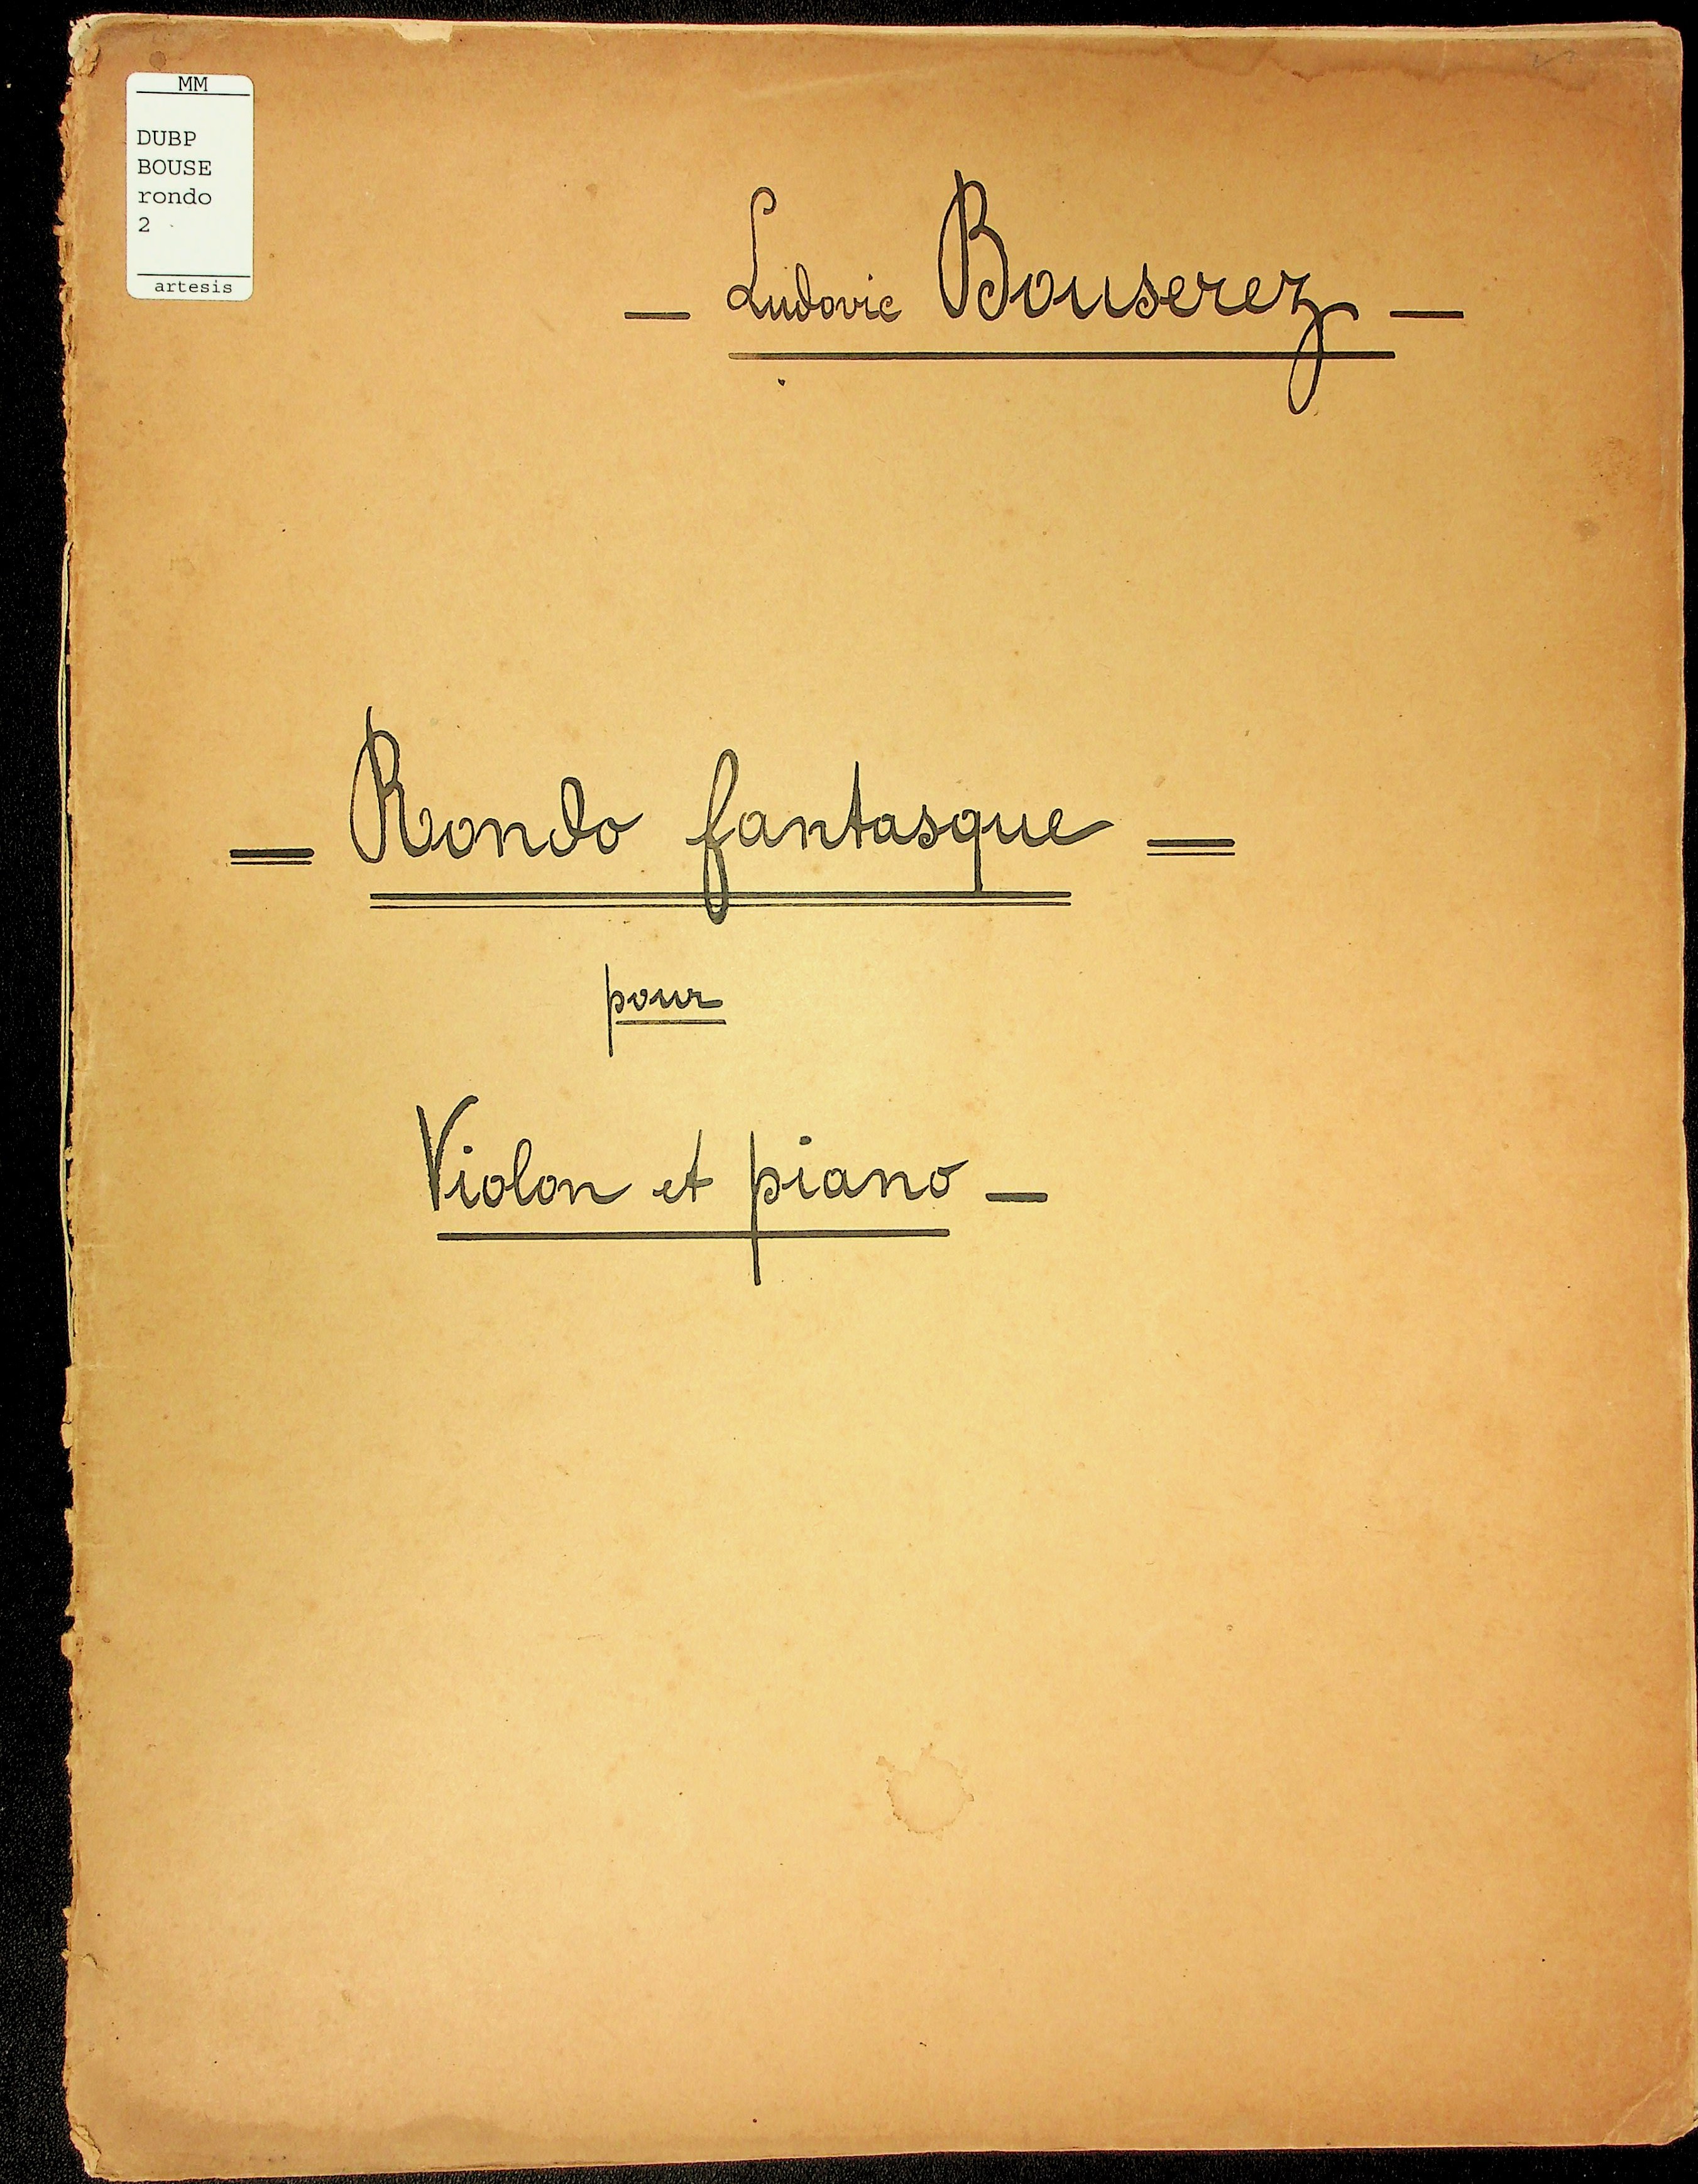 MM
DUBP
BOUSE
rondo
2
artesis
— Ludovic Bouserez —
— Rondo fantasque —
pour
Violon et piano —